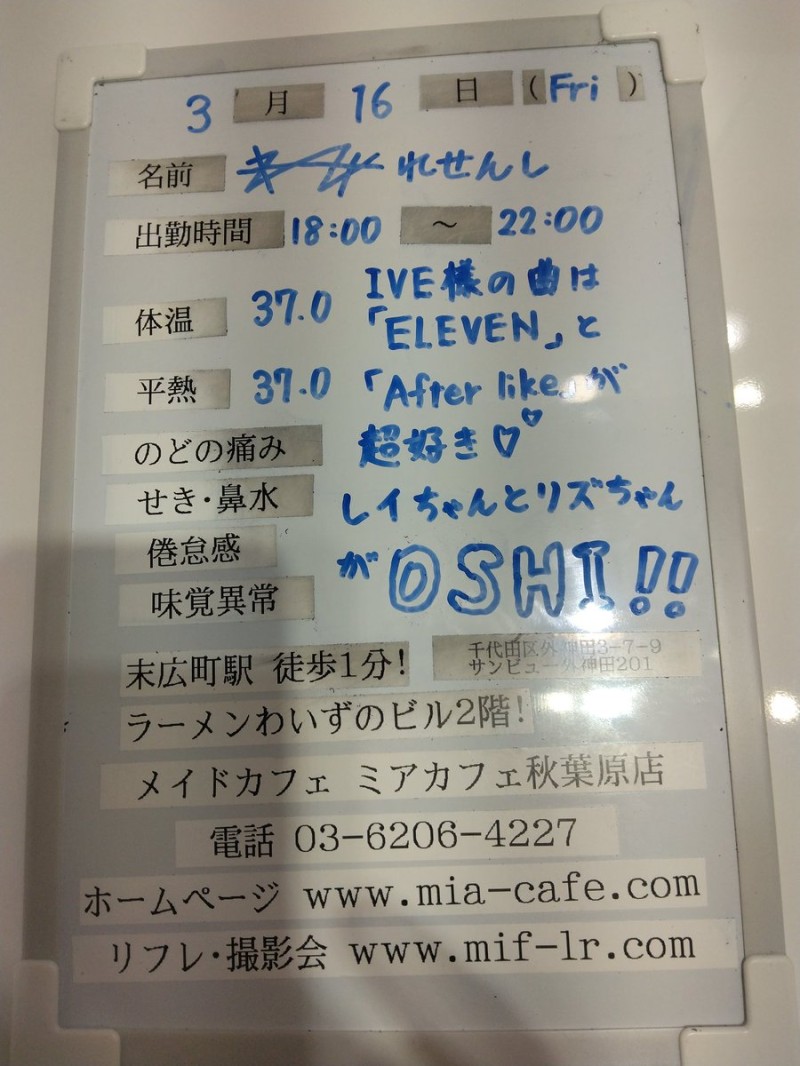 3 月 16 日 (Fri)
名前 れせんし
出勤時間 18:00 ~ 22:00
体温 37.0
平熱 37.0
IVE様の曲は
「ELEVEN」と
「After like」が
超好き♡♡
レイちゃんとリズちゃん
が OSHI!!
のどの痛み
せき・鼻水
倦怠感
味覚異常
末広町駅 徒歩1分!
千代田区外神田3-7-9
サンビュー外神田201
ラーメンわいずのビル2階!
メイドカフェ ミアカフェ秋葉原店
電話 03-6206-4227
ホームページ www.mia-cafe.com
リフレ・撮影会 www.mif-lr.com